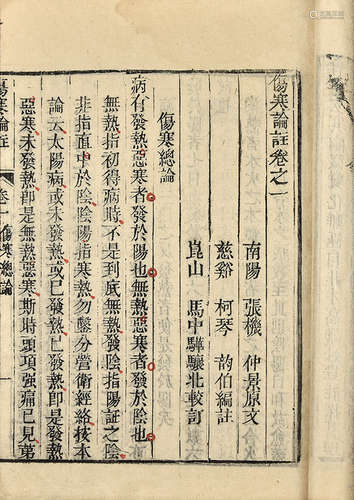 傷寒論註卷之一
南陽 張機 仲景原文
慈谿 柯琴 韵伯編註
崑山 馬中驊驤北較訂
傷寒總論
病有發熱惡寒者發於陽也無熱惡寒者發於陰也
無熱指初得病時不是到底無熱發陰指陽証之陰
非指直中於陰陰陽指寒熱勿鑿分營衛經絡按本
論云太陽病或未發熱或已發熱已發熱即是發熱
惡寒未發熱即是無熱惡寒斯時頭項强痛已見第
傷寒論註 卷一 傷寒總論